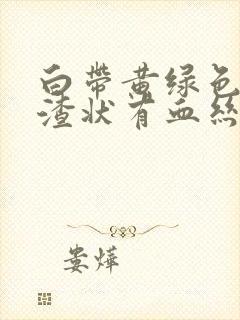 白带黄绿色
渣状有血丝
娄烨